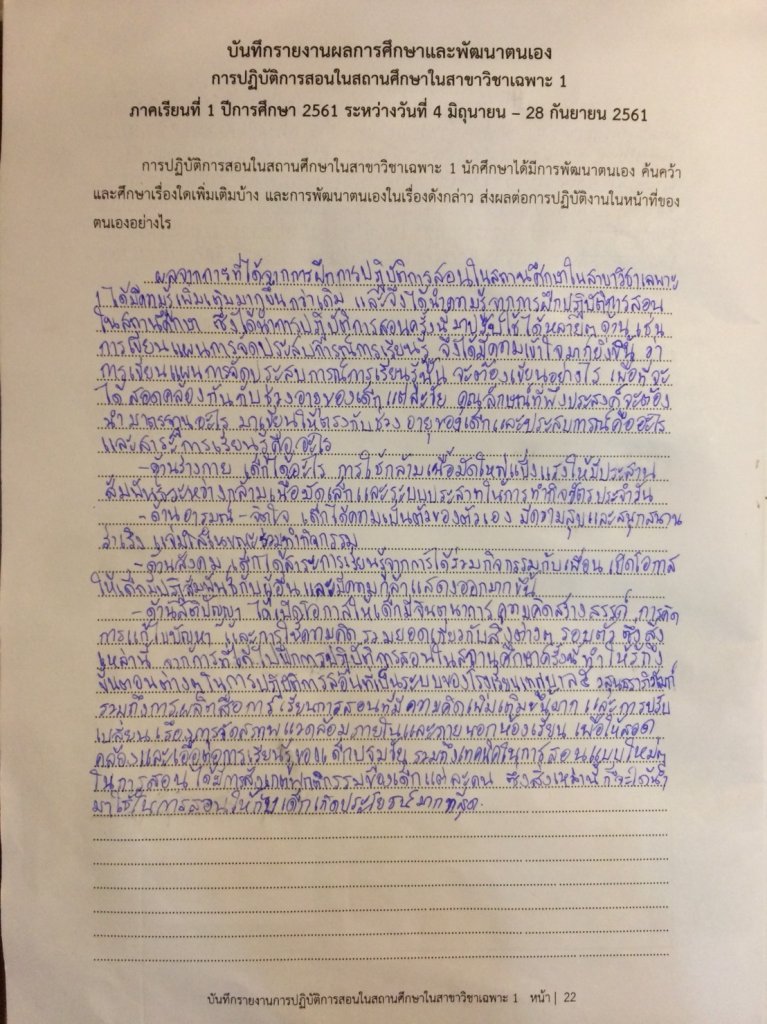 บันทึกรายงานผลการศึกษาและพัฒนาตนเอง
การปฏิบัติการสอนในสถานศึกษาในสาขาวิชาเฉพาะ 1
ภาคเรียนที่ 1 ปีการศึกษา 2561 ระหว่างวันที่ 4 มิถุนายน – 28 กันยายน 2561
การปฏิบัติการสอนในสถานศึกษาในสาขาวิชาเฉพาะ 1 นักศึกษาได้มีการพัฒนาตนเอง ค้นคว้า
และศึกษาเรื่องใดเพิ่มเติมบ้าง และการพัฒนาตนเองในเรื่องดังกล่าว ส่งผลต่อการปฏิบัติงานในหน้าที่ของ
ตนเองอย่างไร
ผลจากการที่ได้จากการฝึกการปฏิบัติการสอนในสถานศึกษาในสาขาวิชาเฉพาะ
1 ได้มีความรู้เพิ่มเติมมากขึ้นกว่าเดิม และจึงได้นำความรู้จากการฝึกปฏิบัติการสอน
ในสถานศึกษา ซึ่งได้นำการปฏิบัติการสอนครั้งนี้มาปรับใช้ได้หลายๆ ด้าน เช่น
การเขียนแผนการจัดประสบการณ์การเรียนรู้ จึงได้มีความเข้าใจมากยิ่งขึ้น ว่า
การเขียนแผนการจัดประสบการณ์การเรียนรู้นั้น จะต้องเขียนอย่างไร เพื่อที่จะ
ได้สอดคล้องกันกับช่วงอายุของเด็กแต่ละวัย คุณลักษณ์ที่พึงประสงค์จะต้อง
นำมาตรฐานอะไร มาเขียนให้ตรงกับช่วงอายุของเด็กและประสบการณ์คืออะไร
และสาระการเรียนรู้คืออะไร
-ด้านร่างกาย เด็กได้อะไร การใช้กล้ามเนื้อมัดใหญ่แข็งแรงให้มีประสาน
สัมพันธ์ระหว่างกล้ามเนื้อมัดเล็กและระบบประสาทในการทำกิจวัตรประจำวัน
-ด้านอารมณ์-จิตใจ เด็กได้ความเป็นตัวของตัวเอง มีความสุขและสนุกสนาน
ร่าเริง แจ่มใสในขณะร่วมทำกิจกรรม
-ด้านสังคม เด็กได้สาระการเรียนรู้จากการได้ร่วมกิจกรรมกับเพื่อน เปิดโอกาส
ให้เด็กมีปฏิสัมพันธ์กับผู้อื่น และมีความกล้าแสดงออกมากขึ้น
-ด้านสติปัญญา ได้เปิดโอกาสให้เด็กมีจินตนาการ ความคิดสร้างสรรค์ การคิด
การแก้ไขปัญหา และการใช้ความคิด รวบยอดเกี่ยวกับสิ่งต่างๆ รอบตัว ซึ่งสิ่ง
เหล่านี้ จากการที่ได้ไปฝึกการปฏิบัติการสอนในสถานศึกษาครั้งนี้ ทำให้รู้ถึง
ขั้นตอนต่างๆ ในการปฏิบัติการสอนที่เป็นระบบของโรงเรียนเทศบาล5
รวมถึงการผลิตสื่อการเรียนการสอนที่มีความคิดเพิ่มเติมขึ้นมาก และการปรับ
เปลี่ยนเรื่องการจัดสภาพแวดล้อมภายในและภายนอกห้องเรียน เพื่อให้สอด
คล้องและเอื้อต่อการเรียนรู้ของเด็กปฐมวัย รวมถึงเทคนิคในการสอนแบบใหม่ๆ
ในการสอน ได้มีการสังเกตพฤติกรรมของเด็กแต่ละคน ซึ่งสิ่งเหล่านี้ก็จะได้นำ
มาใช้ในการสอนให้กับเด็กเกิดประโยชน์มากที่สุด.
บันทึกรายงานการปฏิบัติการสอนในสถานศึกษาในสาขาวิชาเฉพาะ 1 หน้า | 22